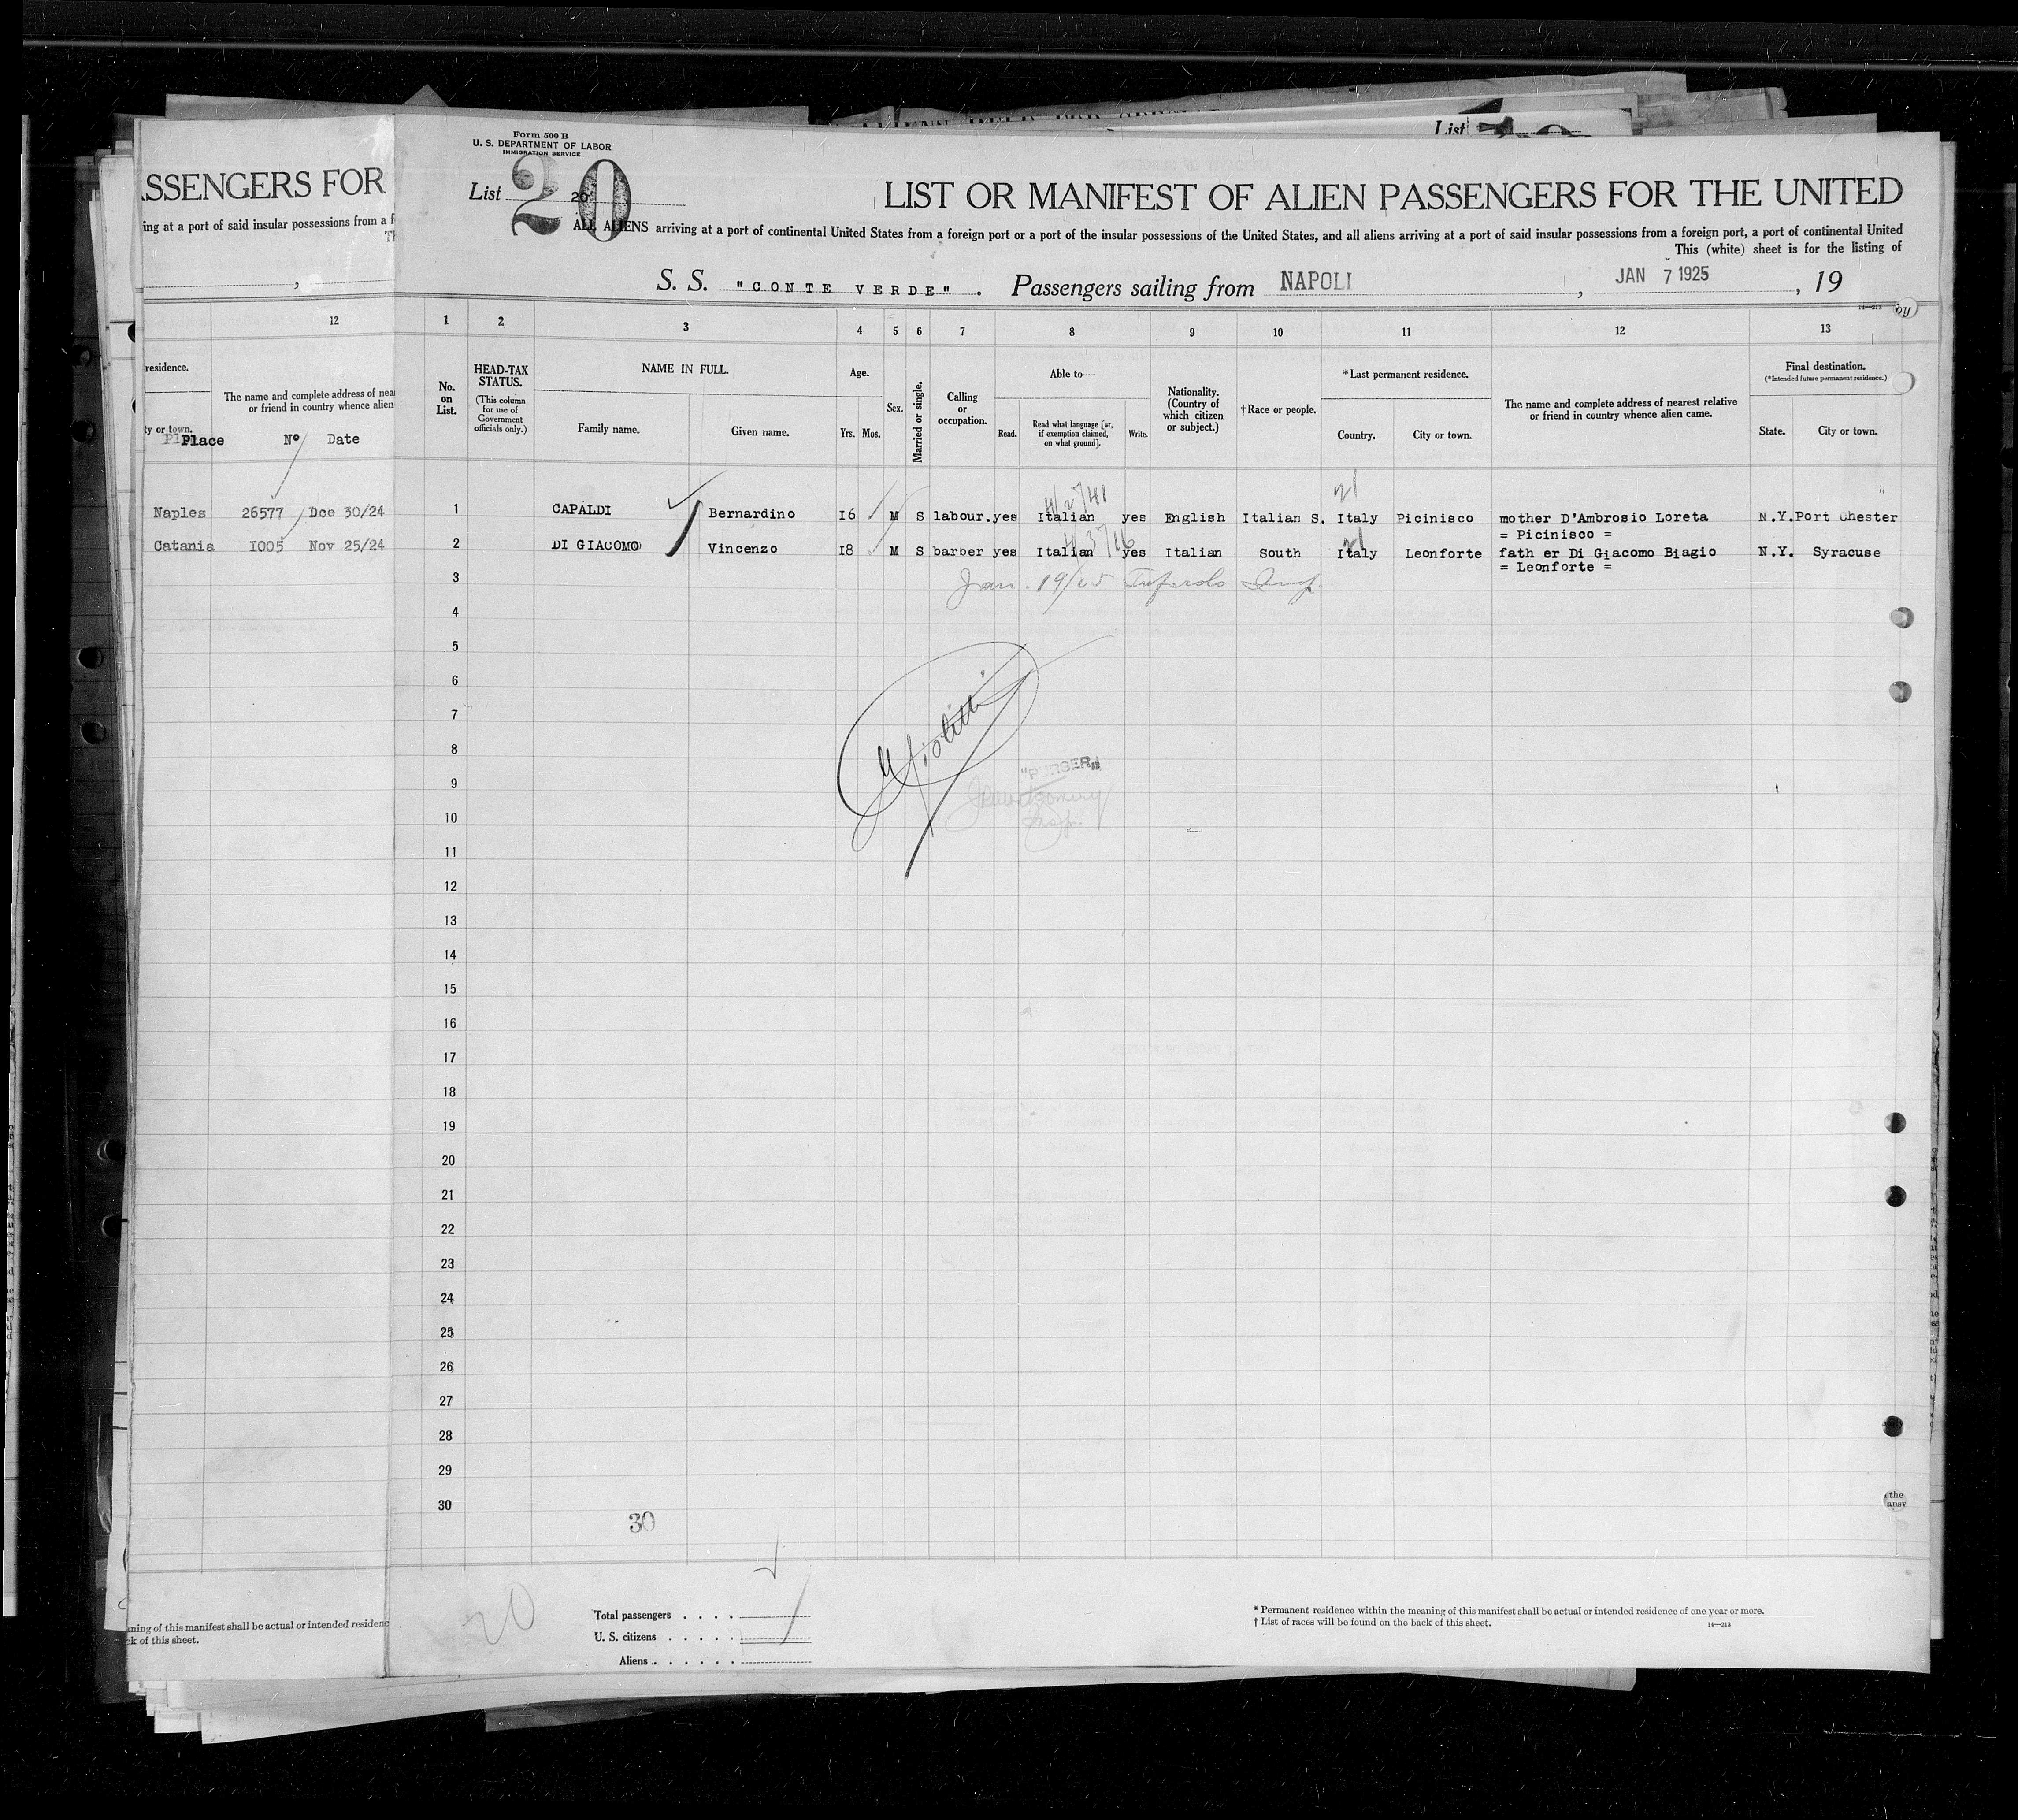 Form 500 B
U. S. DEPARTMENT OF LABOR
IMMIGRATION SERVICE
List
List 20
20
SSENGERS FOR
LIST OR MANIFEST OF ALIEN PASSENGERS FOR THE UNITED
ing at a port of said insular possessions from a f
ALL ALIENS arriving at a port of continental United States from a foreign port or a port of the insular possessions of the United States, and all aliens arriving at a port of said insular possessions from a foreign port, a port of continental United
Th
This (white) sheet is for the listing of
S. S. "CONTE VERDE". Passengers sailing from NAPOLI, JAN 7 1925, 19
14—213
12
1 2 3 4 5 6 7 8 9 10 11 12 13
residence.
ty or town.
The name and complete address of nea
or friend in country whence alien
Place Nº Date
No. on List.
HEAD-TAX STATUS.
(This column for use of Government officials only.)
NAME IN FULL.
Family name. Given name.
Age.
Yrs. Mos.
Sex.
Married or single.
Calling or occupation.
Able to—
Read. Read what language [or, if exemption claimed, on what ground]. Write.
Nationality. (Country of which citizen or subject.)
† Race or people.
* Last permanent residence.
Country. City or town.
The name and complete address of nearest relative or friend in country whence alien came.
Final destination.
(*Intended future permanent residence.)
State. City or town.
21
Naples 26577 Dce 30/24
1 CAPALDI Bernardino 16 M S labour. yes Italian yes English Italian S. Italy Picinisco mother D'Ambrosio Loreta N.Y. Port Chester
= Picinisco =
Catania 1005 Nov 25/24
2 DI GIACOMO Vincenzo 18 M S barber yes Italian yes Italian South Italy Leonforte fath er Di Giacomo Biagio N.Y. Syracuse
= Leonforte =
21
3
Jan. 19/25 Insp.
4
5
6
7
8
9
"PURSER"
10
Insp.
11
12
13
14
15
16
17
18
19
20
21
22
23
24
25
26
27
28
29
30
30
20
Total passengers . . . .
U. S. citizens . . . . .
Aliens . . . . . .
aning of this manifest shall be actual or intended residenc
ck of this sheet.
* Permanent residence within the meaning of this manifest shall be actual or intended residence of one year or more.
† List of races will be found on the back of this sheet.
14—213